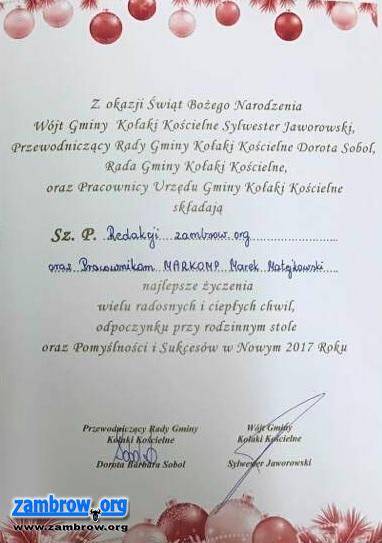 Z okazji Świąt Bożego Narodzenia
Wójt Gminy Kołaki Kościelne Sylwester Jaworowski,
Przewodniczący Rady Gminy Kołaki Kościelne Dorota Sobol,
Rada Gminy Kołaki Kościelne,
oraz Pracownicy Urzędu Gminy Kołaki Kościelne
składają
Sz. P. Redakcji zambrow.org
oraz Pracownikom MARKOMP Marek Matejkowski
najlepsze życzenia
wielu radosnych i ciepłych chwil,
odpoczynku przy rodzinnym stole
oraz Pomyślności i Sukcesów w Nowym 2017 Roku
Przewodniczący Rady Gminy
Kołaki Kościelne
Dorota Barbara Sobol
Wójt Gminy
Kołaki Kościelne
Sylwester Jaworowski
zambrow.org
www.zambrow.org